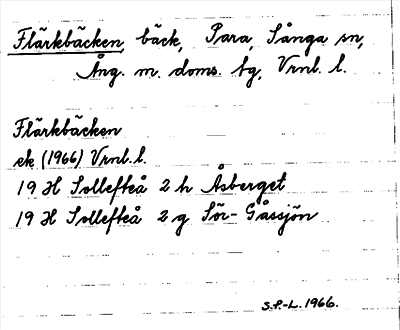 Flärkbäcken, bäck, Para, Sånga sn,
Ång. m. doms. bg, Vrnl. l.
Flärkbäcken
ek (1966) Vrnl. l.
19 H Sollefteå 2 h Åsberget
19 H Sollefteå 2 g Sör-Gåssjön
S.P.-L. 1966.